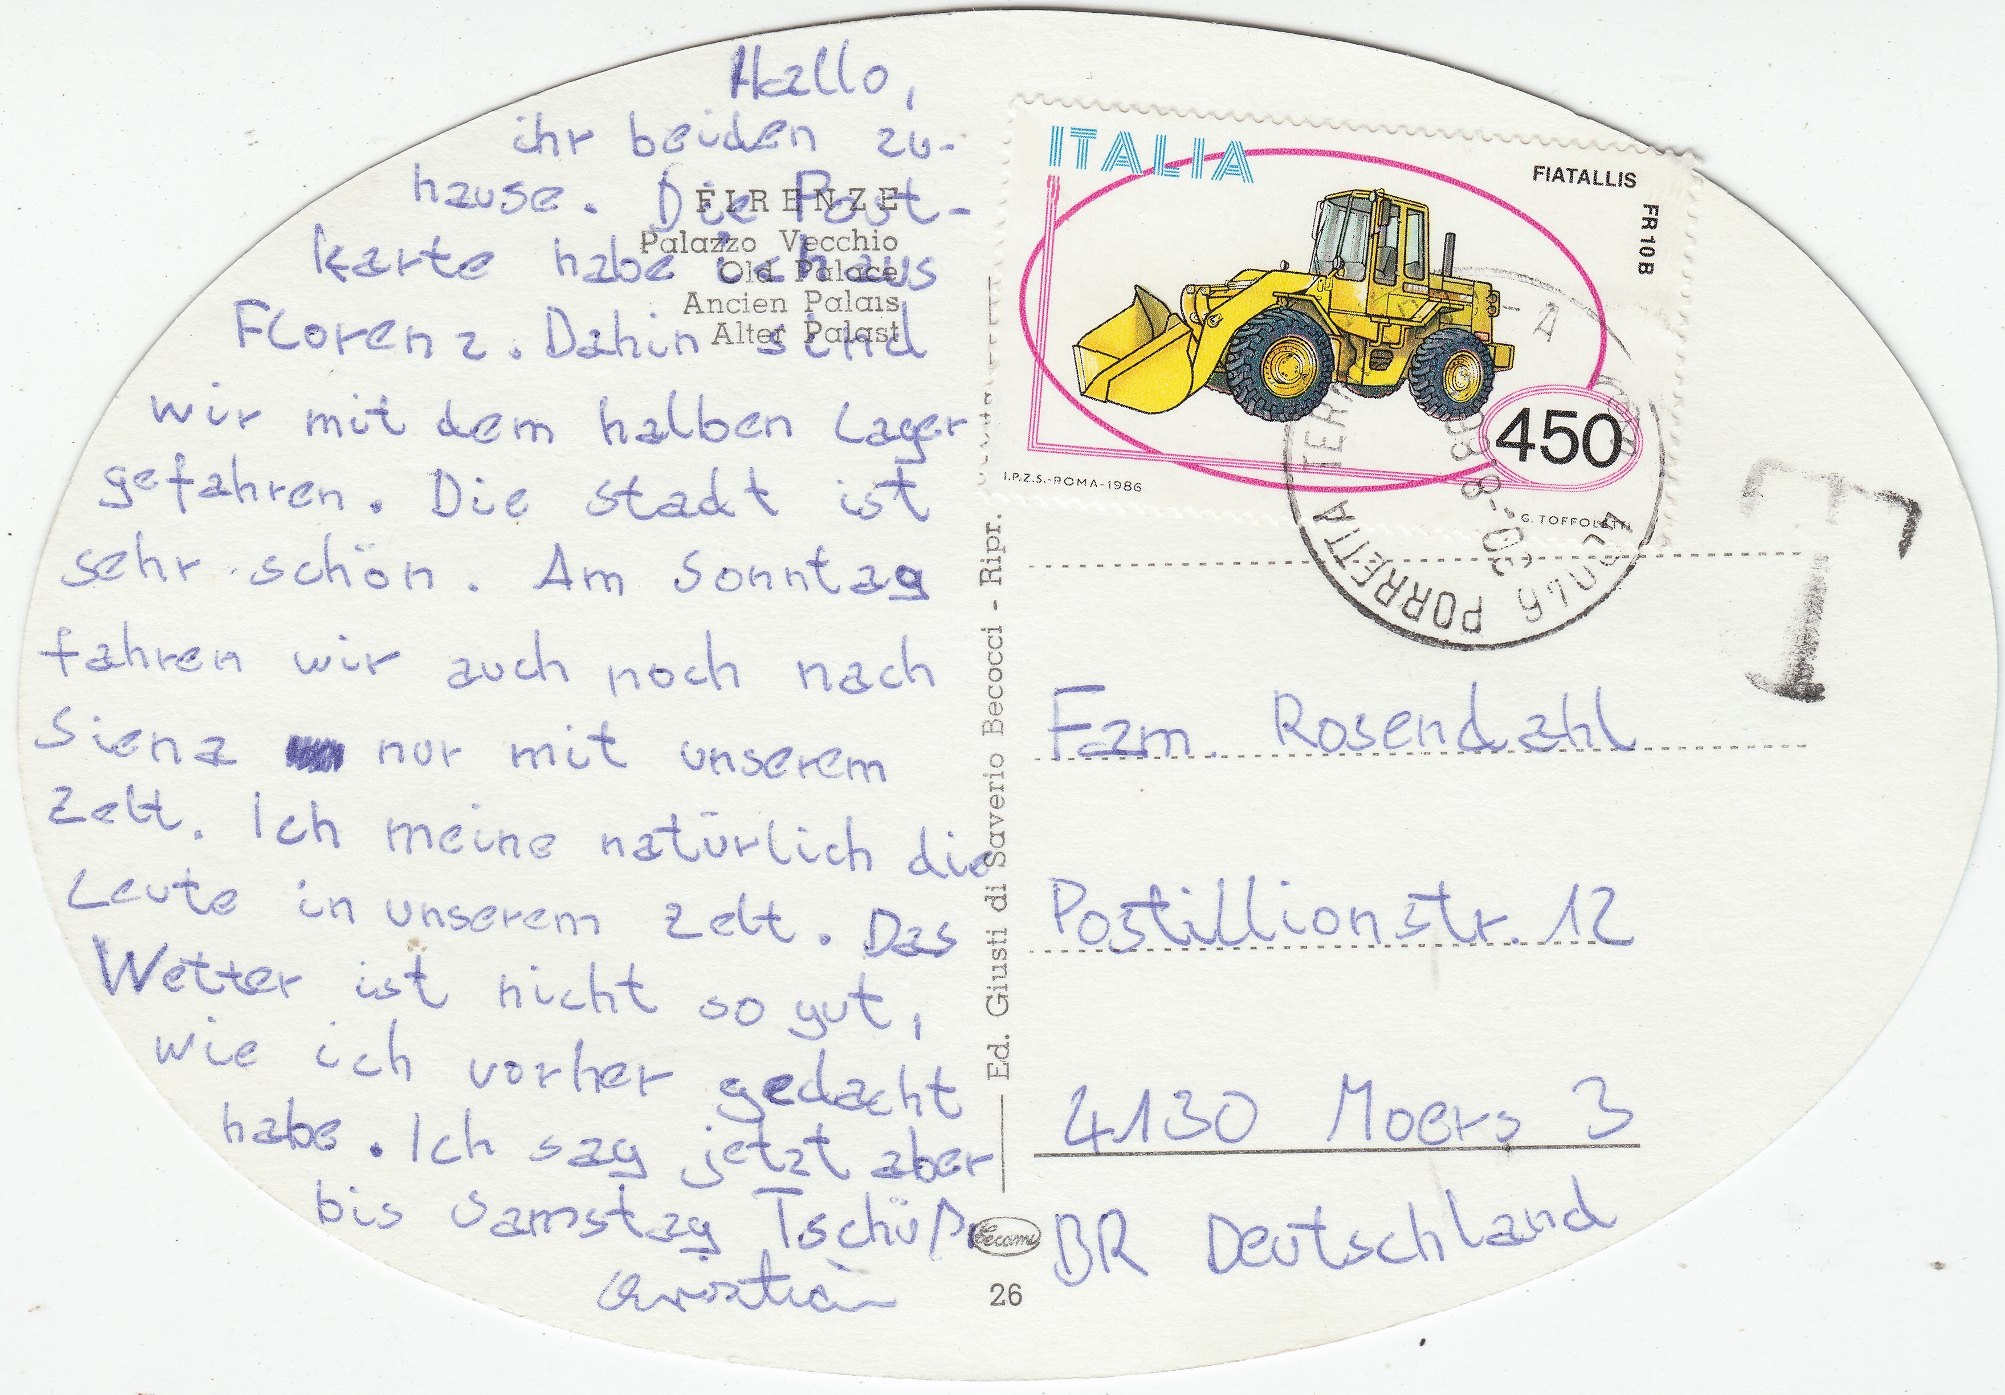 Hallo,
ihr beiden zu-
hause. Die Post-
karte habe ich aus
Florenz. Dahin sind
wir mit dem halben Lager
gefahren. Die Stadt ist
sehr schön. Am Sonntag
fahren wir auch noch nach
Siena nur mit unserem
Zelt. Ich meine natürlich die
Leute in unserem Zelt. Das
Wetter ist nicht so gut,
wie ich vorher gedacht
habe. Ich sag jetzt aber
bis Samstag Tschüß
Christian
FIRENZE
Palazzo Vecchio
Old Palace
Ancien Palais
Alter Palast
Ed. Giusti di Saverio Becocci - Ripr.
Cecami
26
ITALIA
FIATALLIS
FR10B
450
I.P.Z.S.-ROMA-1986
G. TOFFOLETTI
PORRETTA TERME
T
Fam. Rosendahl
Postillionstr. 12
4130 Moers 3
BR Deutschland